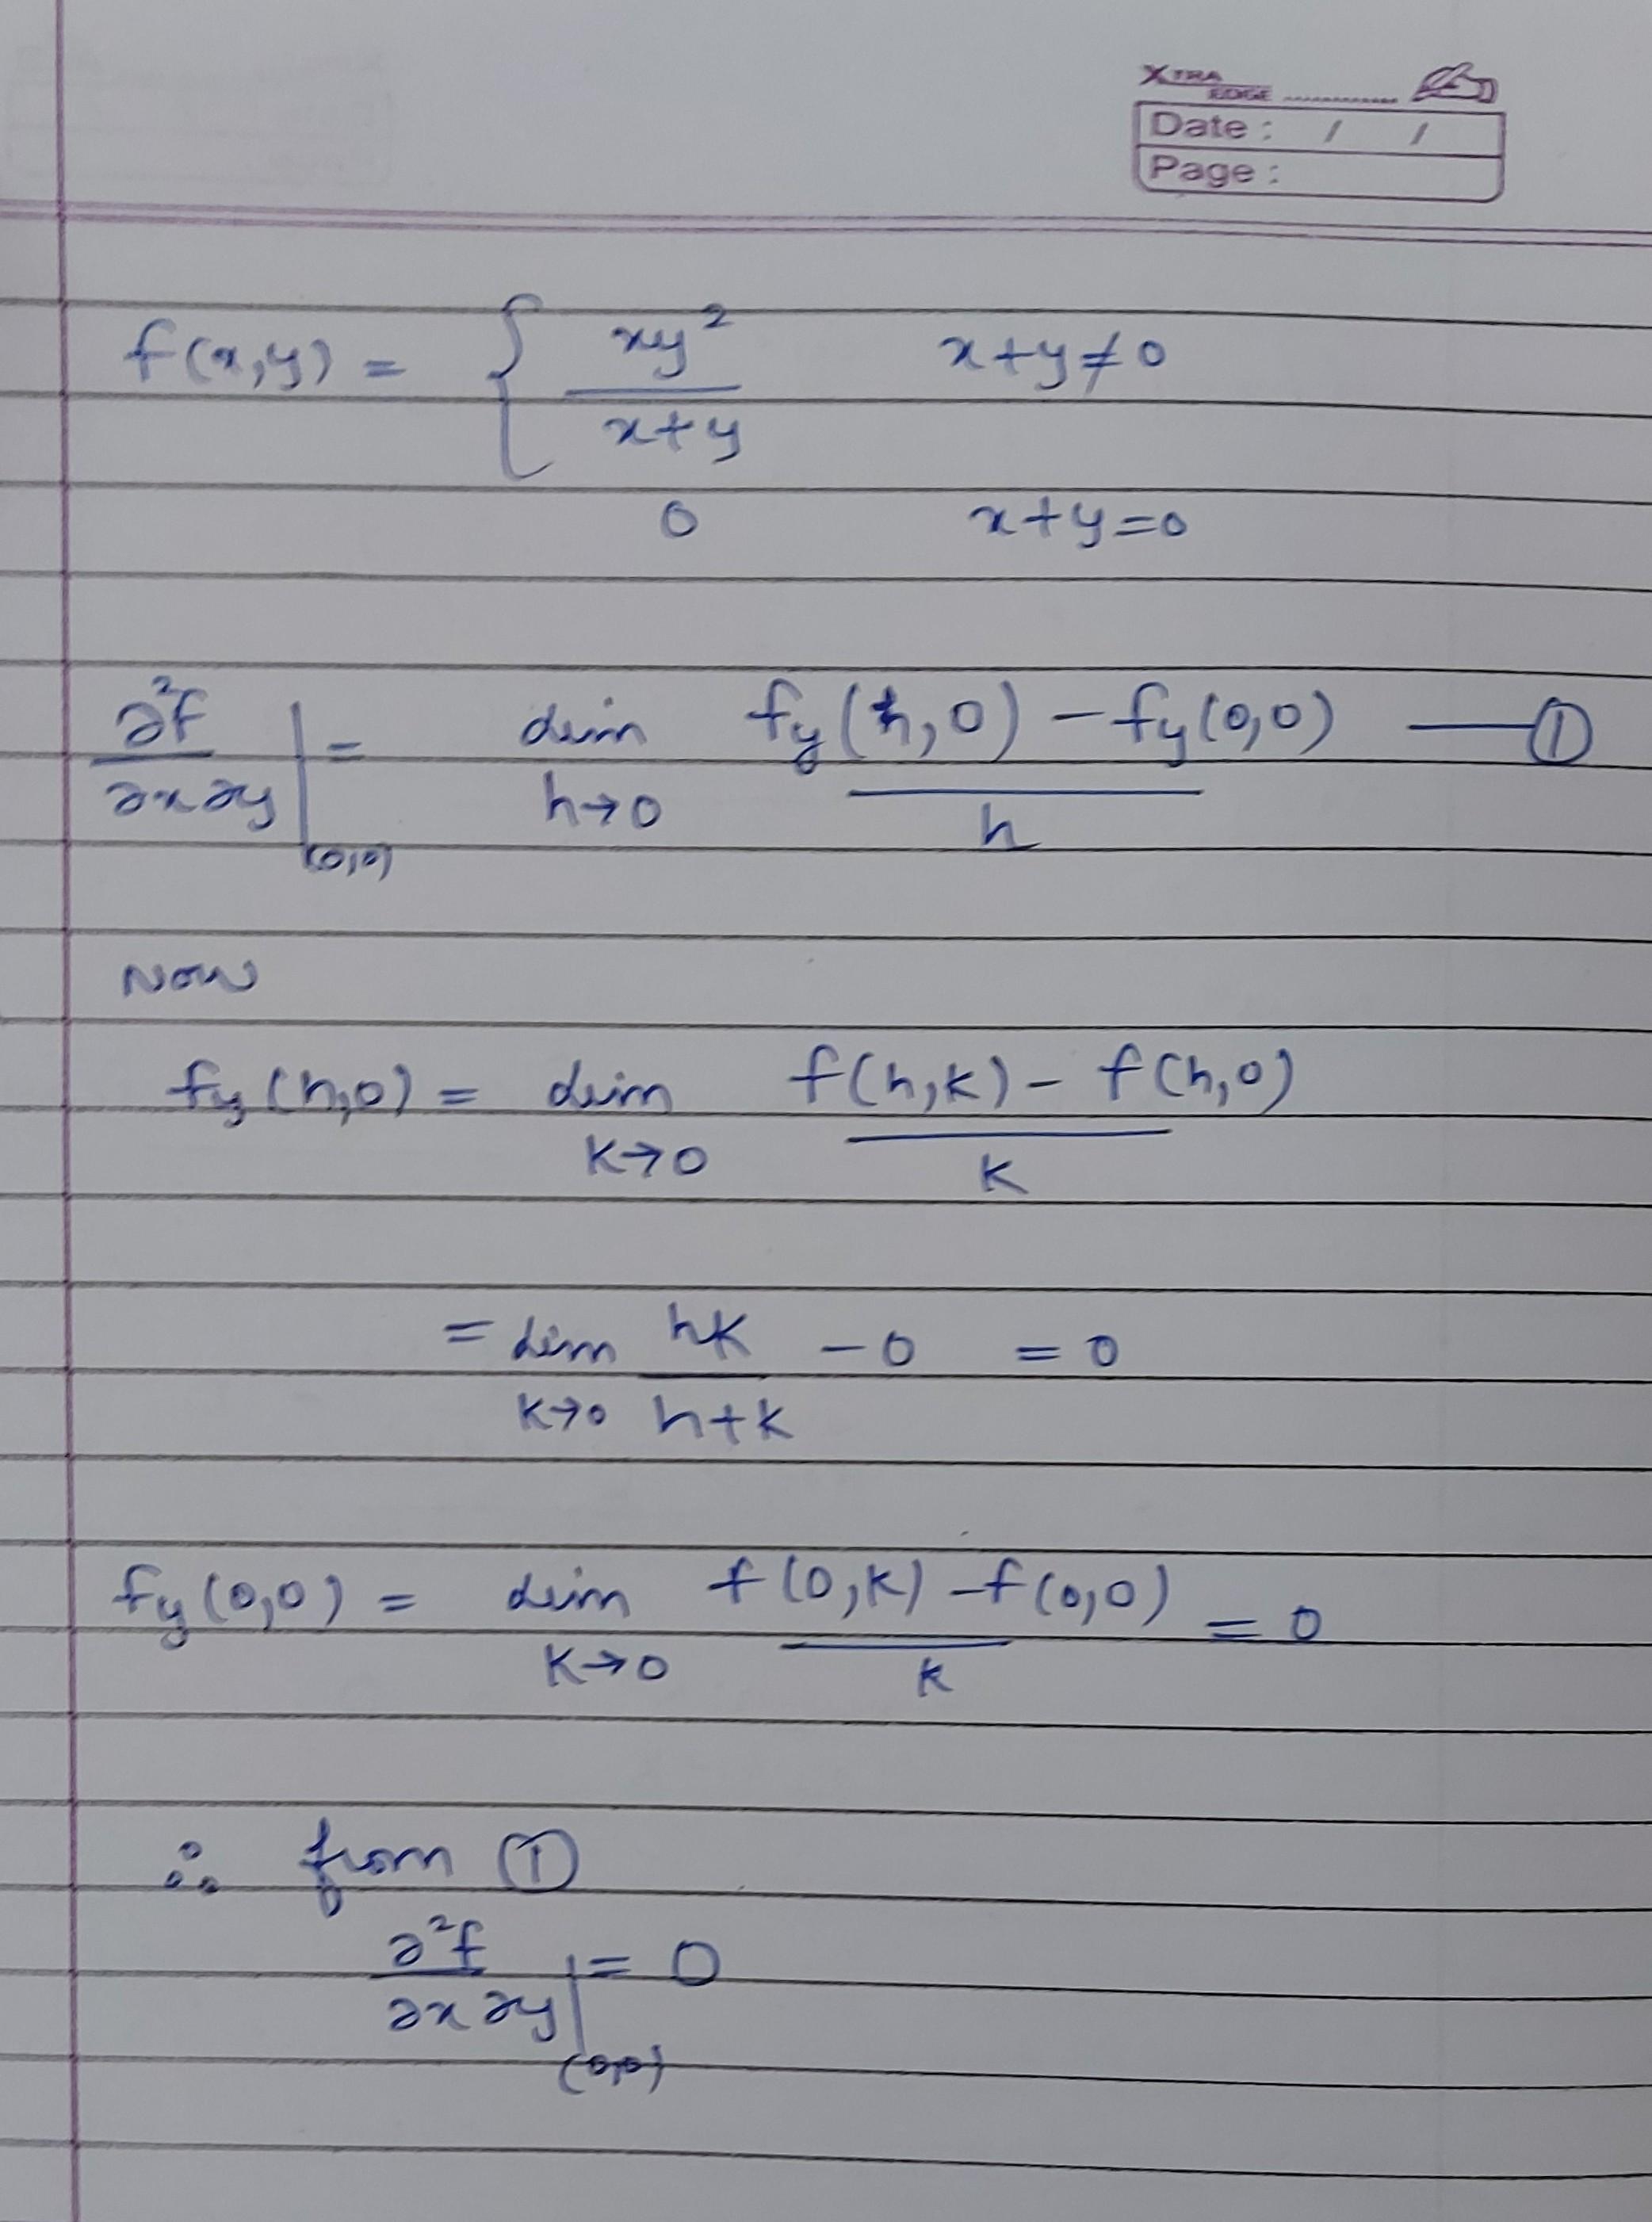 XTRA EDGE ............
Date : / /
Page :
f(x,y) = { xy² / x+y x+y≠0
0 x+y=0
∂²f / ∂x∂y |(0,0) = lim h→0 fy(h,0) - fy(0,0) / h — ①
Now
fy(h,0) = lim k→0 f(h,k) - f(h,0) / k
= lim k→0 hk / h+k - 0 = 0
fy(0,0) = lim k→0 f(0,k) - f(0,0) / k = 0
∴ from ①
∂²f / ∂x∂y |(0,0) = 0